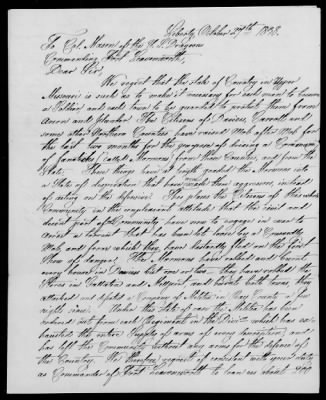 Liberty October 27th 1838.
To Col. Mason of the U. S. Dragoons
Commanding Fort Leavenworth,
Dear Sir,
We regret that the state of Country in Upper
Missouri is such as to make it necessary for each man to become
a soldier and each town to be guarded to protect them from
arson and plunder. The Citizens of Daviess, Carroll and
some other Northern Counties have raised Mob after Mob for
the last two months for the purpose of driving a Company
of fanaticks (called Mormons) from those Counties, and from the
State. These things have at length goaded the Mormons into
a state of desperation that has made them aggressors, instead
of acting on the defensive. This places the Citizens of this whole
Community in the unpleasant attitude that the civil and
decent part of the Community have now to engage in war to
arrest a torrent that has been let loose by a Cowardly
Mob, and from which they have dastardly fled on the first
show of danger. The Mormons have robbed and burnt
every house in Daviess but one or two— they have robbed the
Stores in Gallatin and Millport and burnt both towns, they
attacked and defeated a Company of Militia in Ray County a few
nights since. Under this state of case the Militia has been
ordered out from each Regiment in the Division which has ex-
hausted the entire Supply of arms of every description, and
has left the Community without any arms for the defence of
the Country. We therefore request if consistent with your duty
as Commander of Fort Leavenworth to loan us about 400